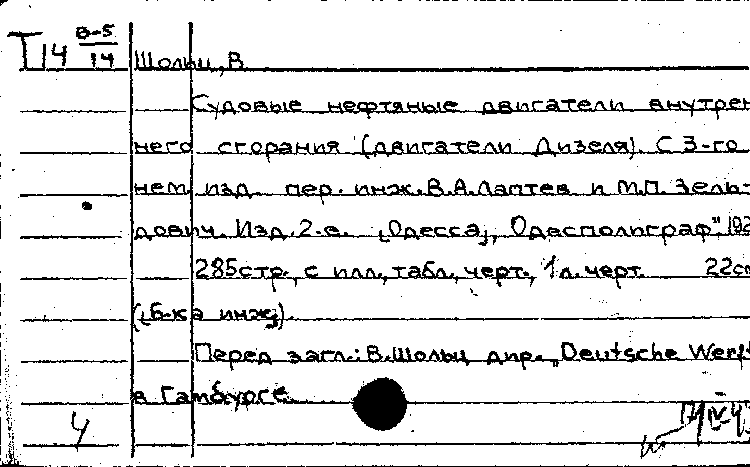 Т14 В-5/14
Шольц, В.
Судовые нефтяные двигатели внутрен
него сгорания (двигатели Дизеля). С 3-го
нем. изд. пер. инж. В.А.Лаптев и М.П. Зель-
дович. Изд. 2-е. [Одесса], "Одесполиграф",
285стр., с илл., табл., черт., 1 л. черт. 22с
([Б-ка инж]).
Перед загл.: В.Шольц дир. "Deutsche Werft
в Гамбурге.